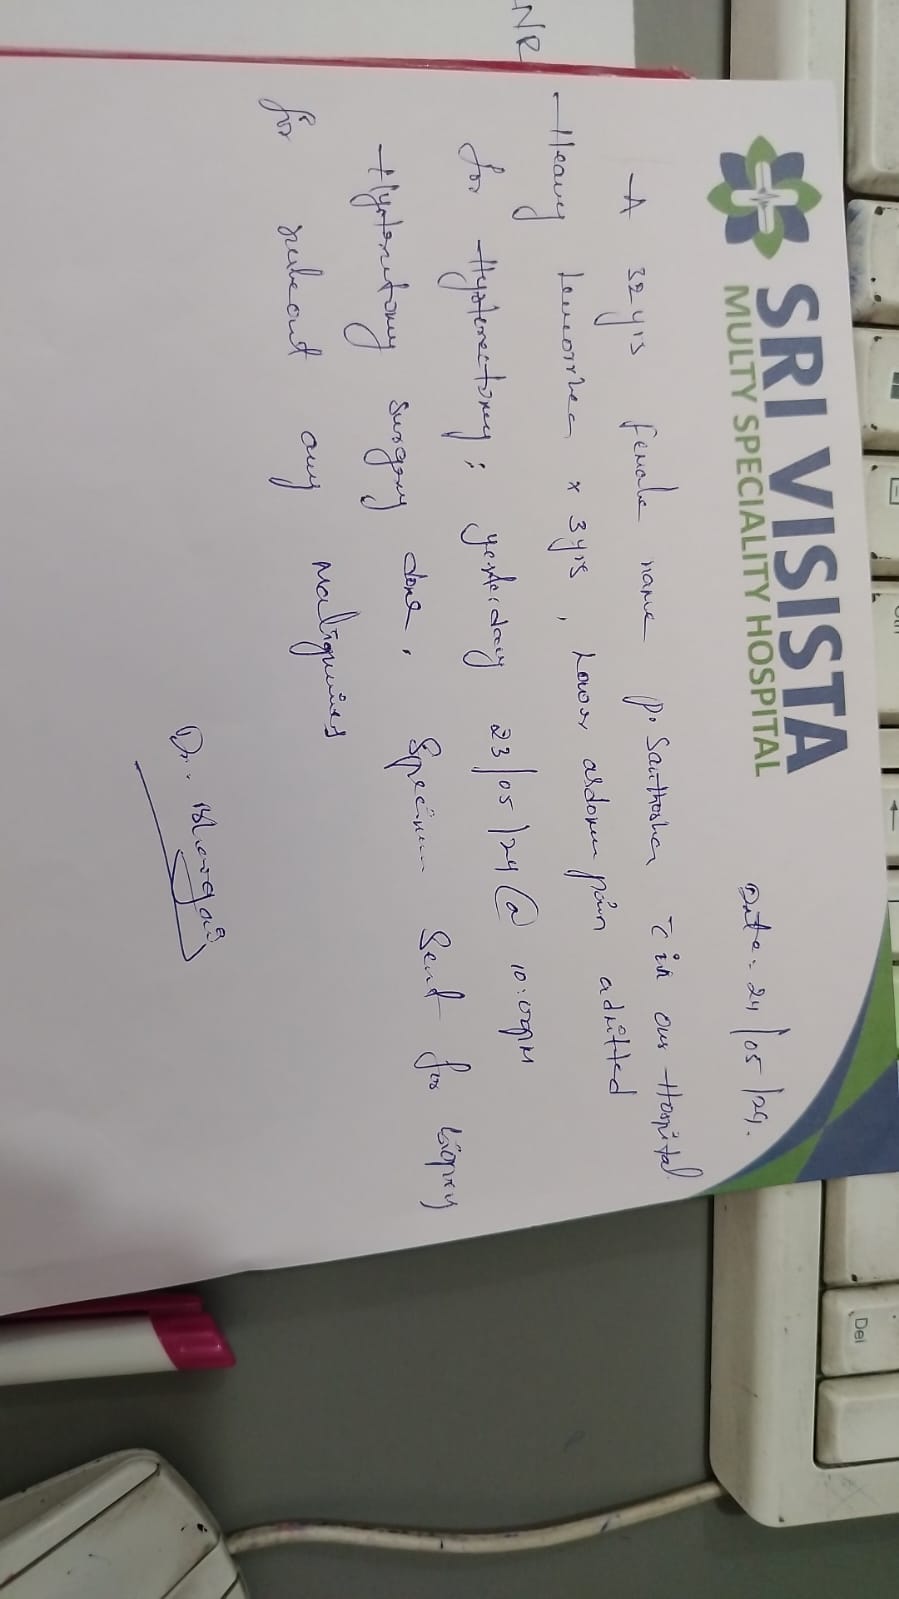 NR
SRI VISISTA
MULTY SPECIALITY HOSPITAL
Date: 24/05/24.
A 32 yrs female name P. Santhosha c̄ in our Hospital.
Heavy Leucorrhea x 3yrs, Lower abdomen pain admitted
for Hysterectomy; yesterday 23/05/24 @ 10:00PM
Hysterectomy surgery done, Specimen Sent for biopsy
for ruleout any malignancies
Dr. Bhargavi
Del